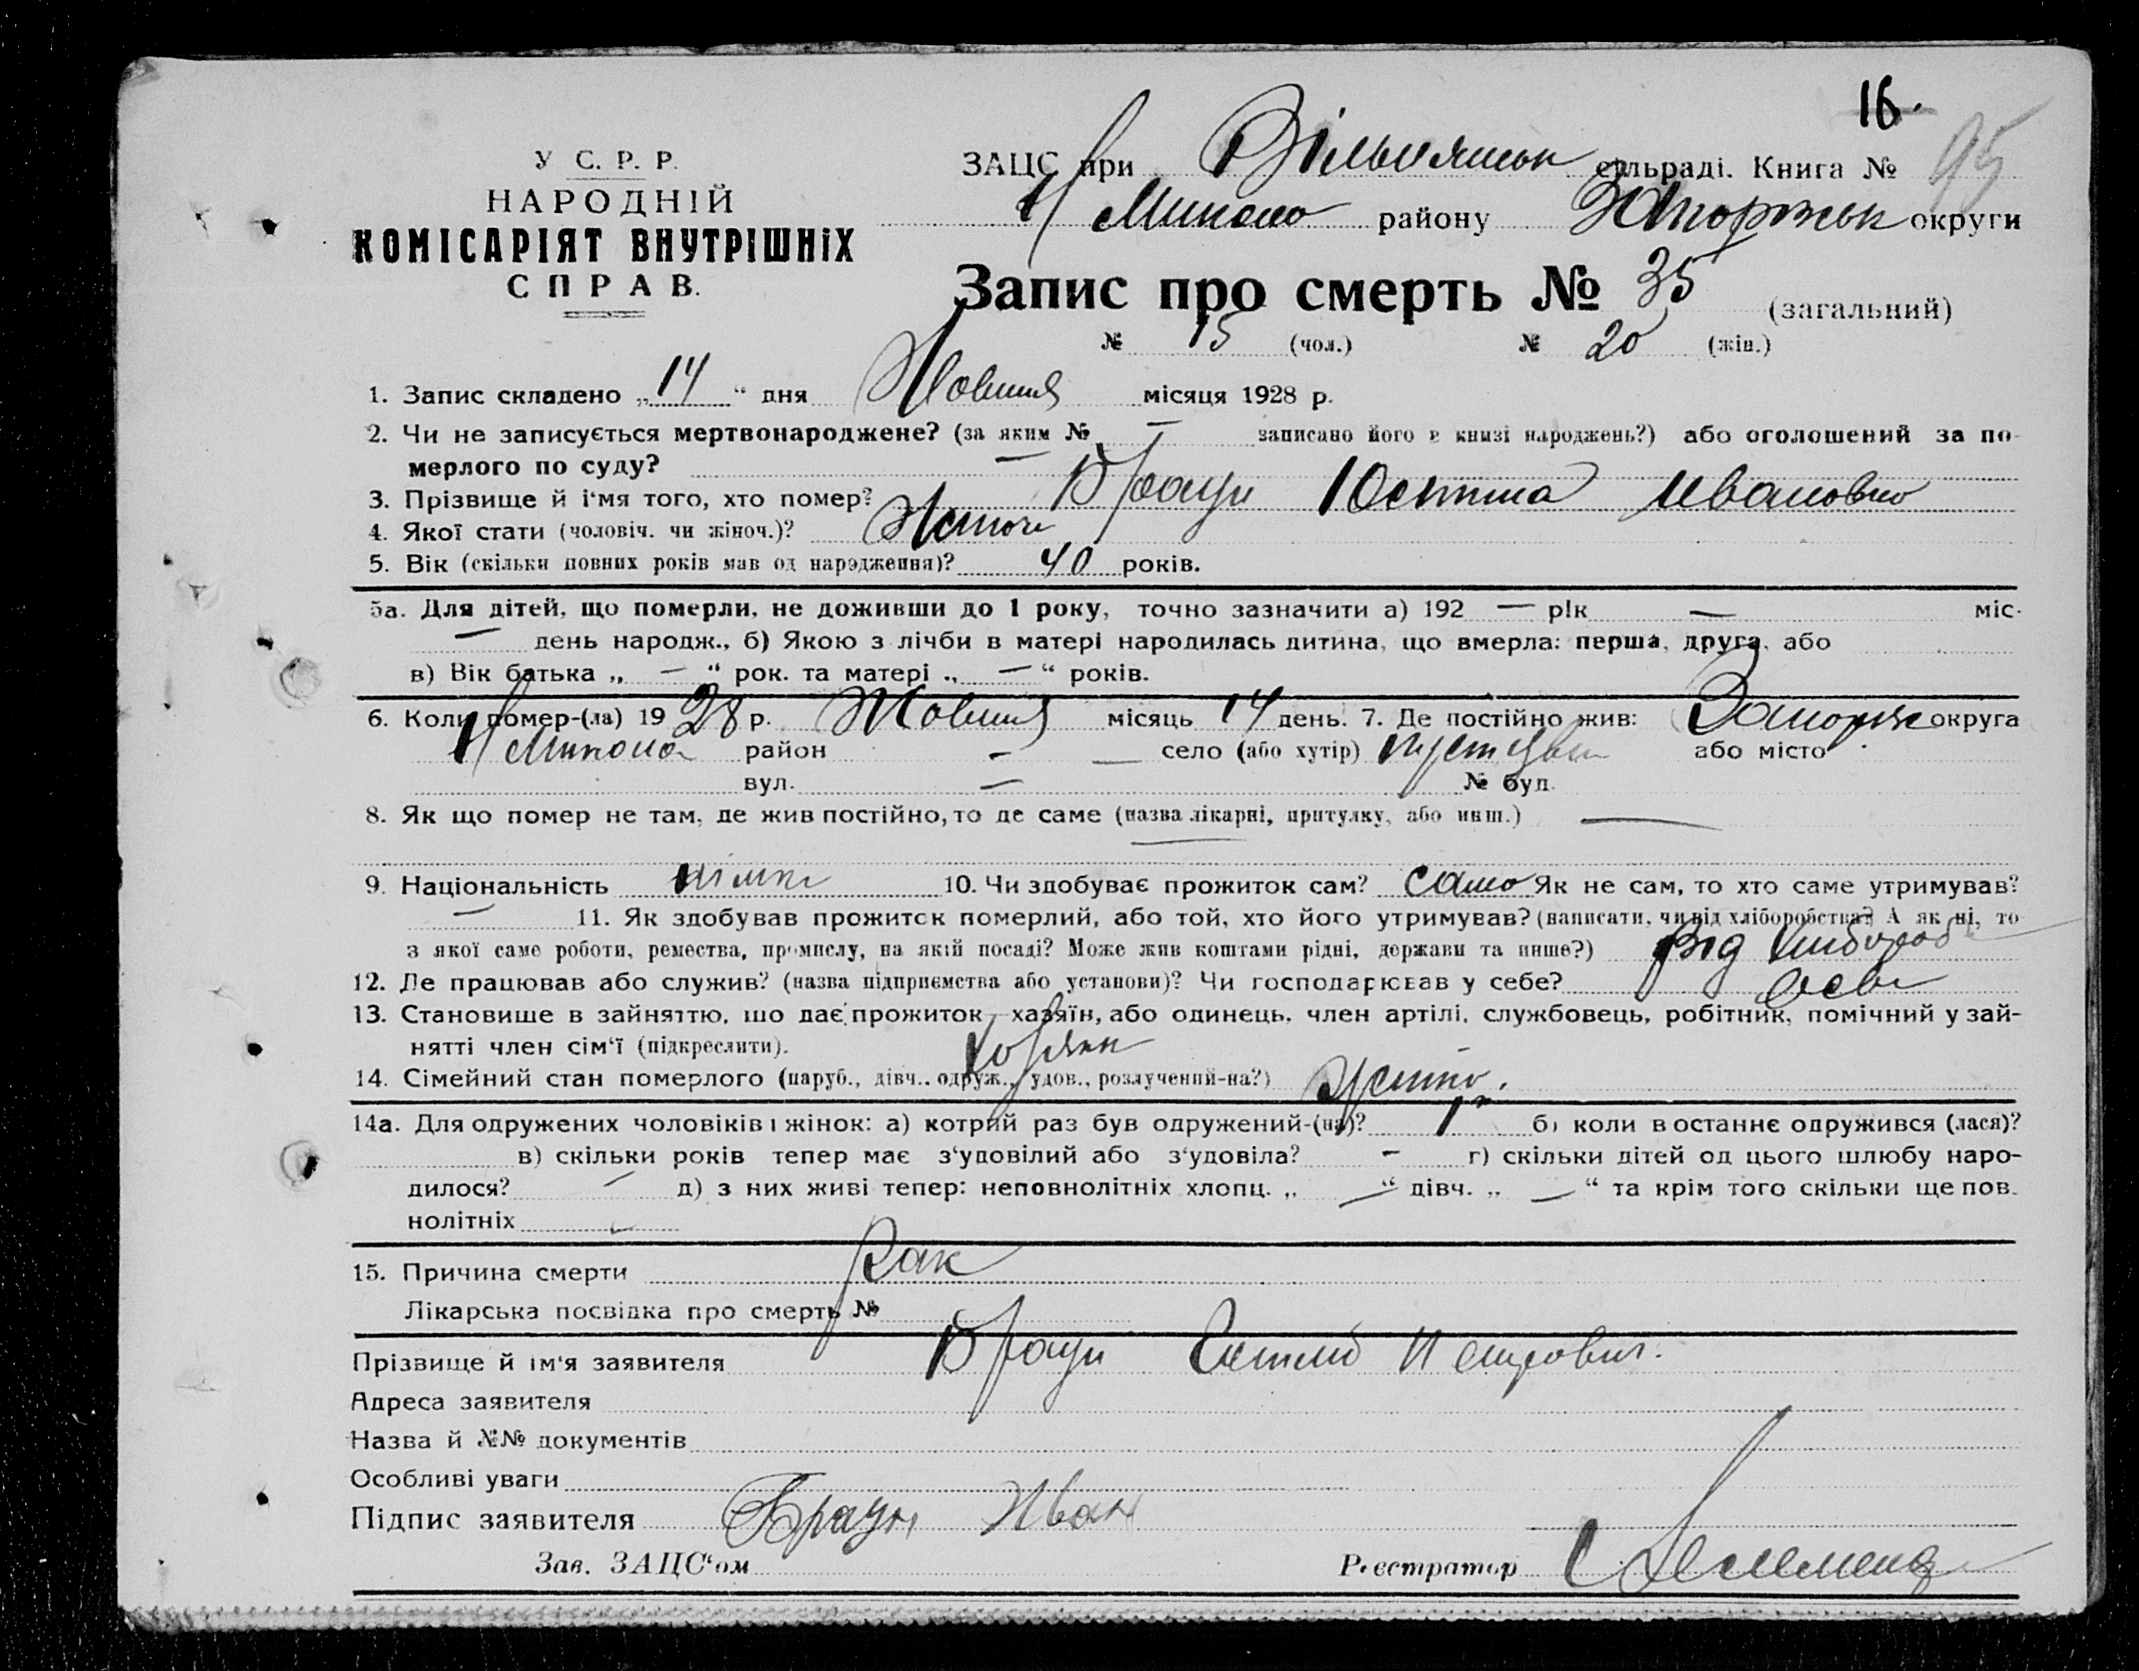 16.
95
У С. Р. Р.
НАРОДНІЙ
КОМІСАРІЯТ ВНУТРІШНІХ
СПРАВ.
ЗАЦС при сільраді. Книга №
району округи
Запис про смерть № 35 (загальний)
№ 15 (чол.) № 20 (жін.)
1. Запис складено „14“ дня Жовтня місяця 1928 р.
2. Чи не записується мертвонароджене? (за яким № — записано його в книзі народжень?) або оголошений за по-
мерлого по суду? —
3. Прізвище й і'мя того, хто помер? Браун Юстина Ивановно
4. Якої стати (чоловіч. чи жіноч.)? Жіноч
5. Вік (скільки повних років мав од народження)? 40 років.
5а. Для дітей, що померли, не доживши до 1 року, точно зазначити а) 192 — рік — міс.
— день народж., б) Якою з лічби в матері народилась дитина, що вмерла: перша, друга, або
в) Вік батька „ — “ рок. та матері „ — “ років.
6. Коли помер-(ла) 1928 р. Жовтня місяць 14 день. 7. Де постійно жив: Запоріж округа
район — село (або хутір) або місто
вул. — № буд.
8. Як що помер не там, де жив постійно, то де саме (назва лікарні, притулку, або инш.) —
9. Національність німка 10. Чи здобуває прожиток сам? само Як не сам, то хто саме утримував?
— 11. Як здобував прожиток померлий, або той, хто його утримував? (написати, чи від хліборобства? А як ні, то
з якої саме роботи, ремества, промислу, на якій посаді? Може жив коштами рідні, держави та инше?) Від хлібороб
12. Де працював або служив? (назва підприємства або установи)? Чи господарював у себе?
13. Становище в зайняттю, що дає прожиток — хазяїн, або одинець, член артілі, службовець, робітник, помічний у зай-
нятті член сім'ї (підкреслити). Хазяин
14. Сімейний стан померлого (паруб., дівч., одруж., удов., розлучений-на?)
14а. Для одружених чоловіків і жінок: а) котрий раз був одружений-(на)? 1 б) коли в останнє одружився (лася)?
в) скільки років тепер має з'удовілий або з'удовіла? — г) скільки дітей од цього шлюбу наро-
дилося? — д) з них живі тепер: неповнолітніх хлопц. „ — “ дівч. „ — “ та крім того скільки ще пов-
нолітніх
15. Причина смерти Рак
Лікарська посвідка про смерть №
Прізвище й ім'я заявителя Браун Петрович.
Адреса заявителя
Назва й №№ документів
Особливі уваги
Підпис заявителя Браун Иван
Зав. ЗАЦС'ом Реєстратор